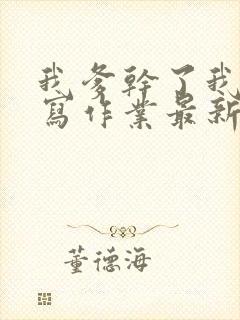 我爹幹了我
寫作業最新
董德海